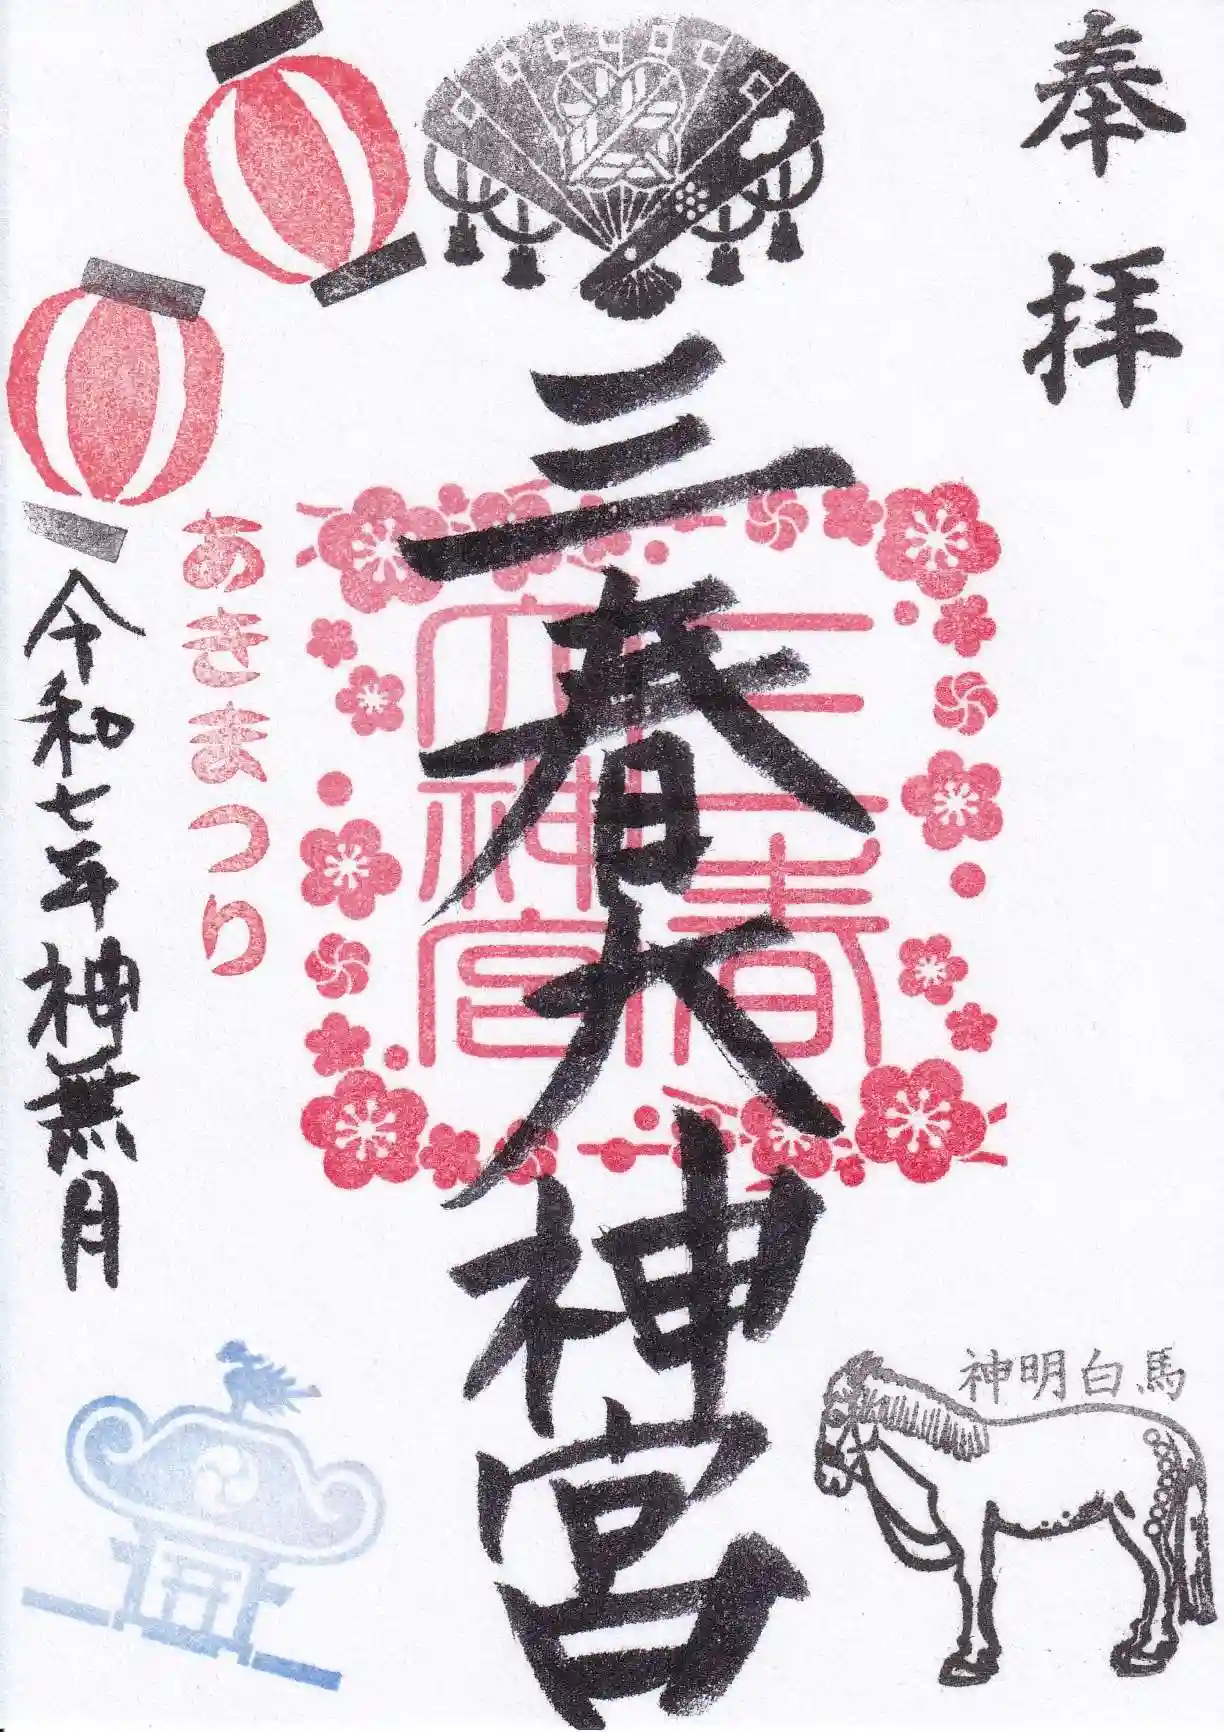 奉拝
三春大神宮
三春大神宮
あきまつり
令和七年神無月
神明白馬